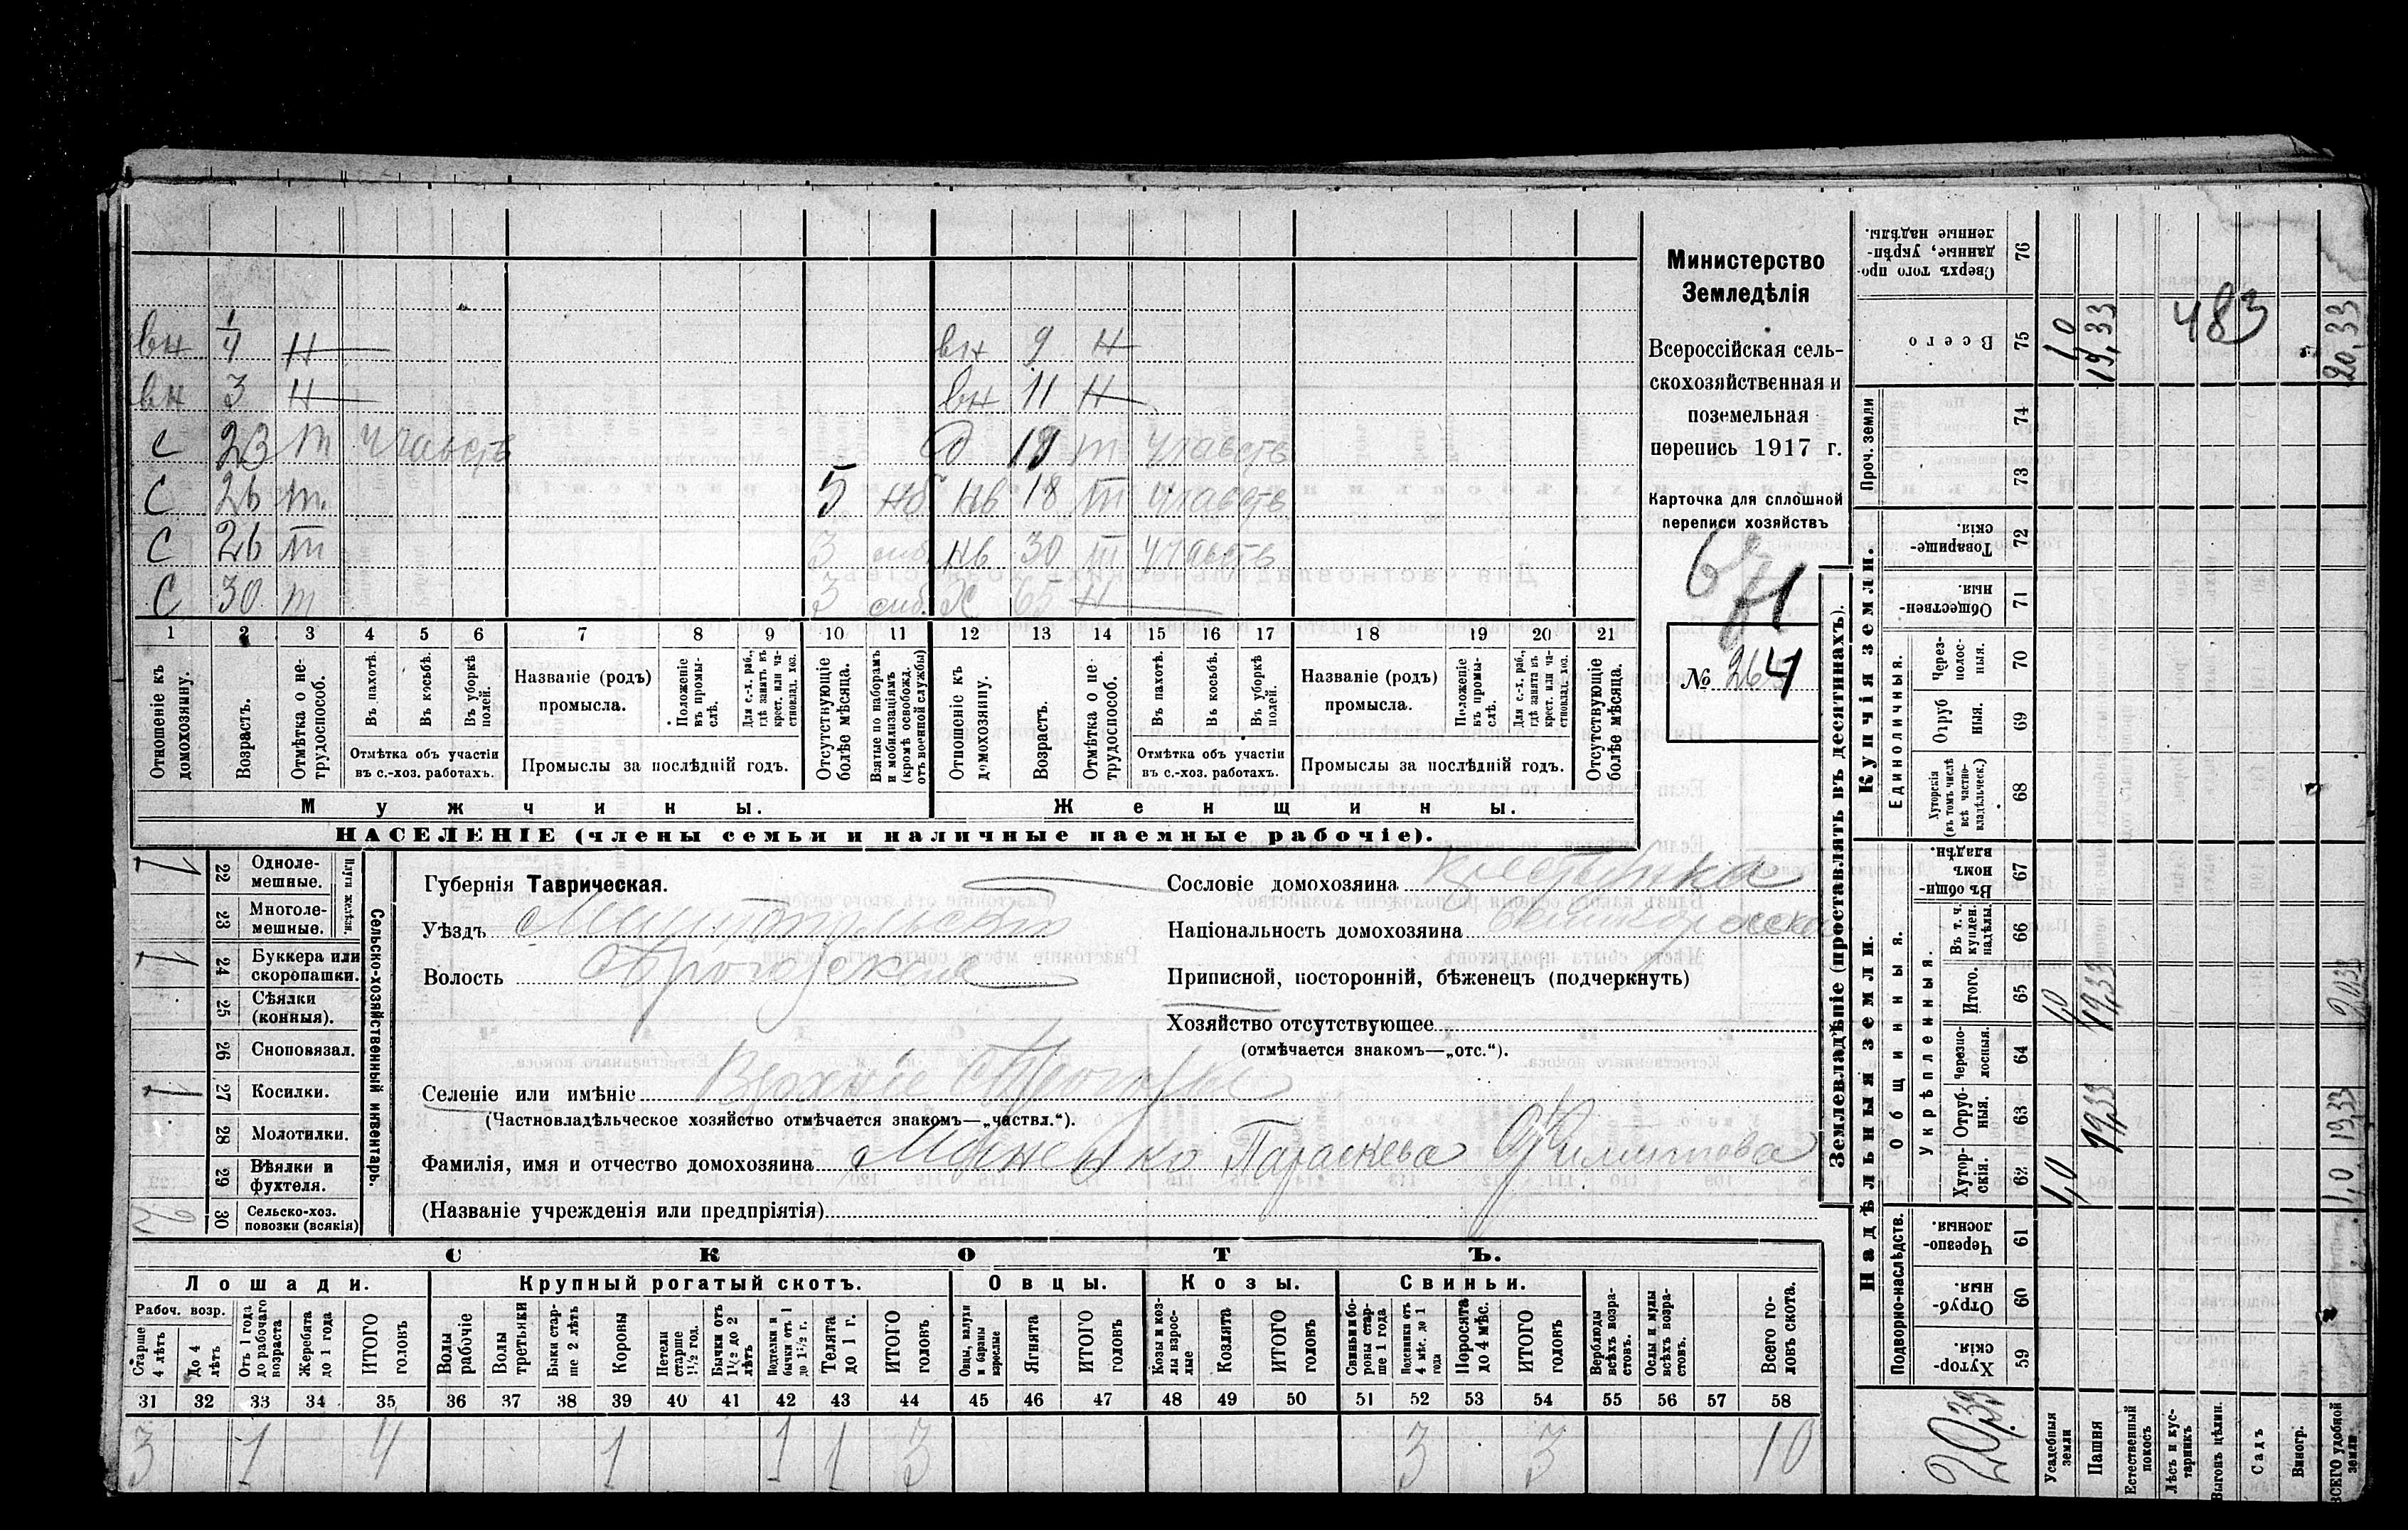 Министерство
Земледѣлія
Всероссійская сель-
скохозяйственная и
поземельная
перепись 1917 г.
Карточка для сплошной
переписи хозяйствъ
№ 264
вн 1/4 Н вн 9 Н
вн 3 Н вн 11 Н
С 23 m участв д 19 m участв
С 26 m. 5 нб нв 18 m участв
С 26 m 3 нв 30 m участв
С 30 m 3 Х 65 Н
1 2 3 4 5 6 7 8 9 10 11 12 13 14 15 16 17 18 19 20 21
Отношеніе къ домохозяину.
Возрастъ.
Отмѣтка о не-трудоспособ.
Въ пахотѣ.
Въ косьбѣ.
Въ уборкѣ полей.
Отмѣтка объ участіи
въ с.-хоз. работахъ.
Названіе (родъ)
промысла.
Положеніе въ промы-слѣ.
Для с.-х. раб., гдѣ занятъ въ крест. или ча-стновлад. хоз.
Промыслы за послѣдній годъ.
Отсутствующіе болѣе мѣсяца.
Взятые по наборамъ и мобилизаціямъ (кромѣ освобожд. отъ военной службы)
Отношеніе къ домохозяину.
Возрастъ.
Отмѣтка о не-трудоспособ.
Въ пахотѣ.
Въ косьбѣ.
Въ уборкѣ полей.
Отмѣтка объ участіи
въ с.-хоз. работахъ.
Названіе (родъ)
промысла.
Положеніе въ промы-слѣ.
Для с.-х. раб., гдѣ занята въ крест. или ча-стновлад. хоз.
Промыслы за послѣдній годъ.
Отсутствующіе болѣе мѣсяца.
Мужчины. Женщины.
НАСЕЛЕНІЕ (члены семьи и наличные наемные рабочіе).
Сельско-хозяйственный инвентарь.
Плуги желѣзн.
1 22 Одноле-мешные.
23 Многоле-мешные.
1 24 Буккера или скоропашки.
25 Сѣялки (конныя).
26 Сноповязал.
1 27 Косилки.
28 Молотилки.
29 Вѣялки и фухтеля.
2 30 Сельско-хоз. повозки (всякія)
Губернія Таврическая.
Уѣздъ Мелитопольскій
Волость
Селеніе или имѣніе Верхніе
(Частновладѣльческое хозяйство отмѣчается знакомъ—„частвл.“).
Фамилія, имя и отчество домохозяина Параскева Филиппова
(Названіе учрежденія или предпріятія)
Сословіе домохозяина крестьянка
Національность домохозяина великоросска
Приписной, посторонній, бѣженец (подчеркнуть)
Хозяйство отсутствующее
(отмѣчается знакомъ—„отс.“).
СКОТЪ.
Лошади. Крупный рогатый скотъ. Овцы. Козы. Свиньи.
Рабоч. возр.
Старше 4 лѣтъ
До 4 лѣтъ
Отъ 1 года до рабочаго возраста
Жеребята до 1 года
ИТОГО головъ
Волы рабочіе
Волы третьяки
Быки стар-ше 2 лѣтъ
Коровы
Нетели старше 1½ год.
Бычки отъ 1½ до 2 лѣтъ
Подтелки и бычки отъ 1 до 1½ г.
Телята до 1 г.
ИТОГО головъ
Овцы, валухи и бараны взрослые
Ягнята
ИТОГО головъ
Козы и коз-лы взрос-лые
Козлята
ИТОГО головъ
Свиньи и бо-ровы стар-ше 1 года
Подсвинки отъ 4 мѣс. до 1 года
Поросята до 4 мѣс.
ИТОГО головъ
Верблюды всѣхъ возра-стовъ.
Ослы и мулы всѣхъ возра-стовъ.
Всего го-ловъ скота.
31 32 33 34 35 36 37 38 39 40 41 42 43 44 45 46 47 48 49 50 51 52 53 54 55 56 57 58
3 1 4 1 1 1 3 3 3 10
Землевладѣніе (проставлять въ десятинахъ).
Надѣльныя земли. Купчія земли.
Проч. земли
Подворно-наслѣдств. Общинныя. Единоличныя.
Укрѣпленныя.
Хутор-скія 59
Отруб-ныя 60
Черезпо-лосныя. 61
Хутор-скія. 62 1,0
Отруб-ныя. 63 19,33
Черезпо-лосныя. 64
Итого. 65 1,0 19,33 20,33
Въ т. ч. куплен. надѣлы. 66
Въ общи-номъ владѣн. 67
Хуторскія (въ томъ числѣ всѣ частно-владѣльческ.) 68
Отруб ныя. 69
Через-полос-ныя. 70
Обществен-ныя 71
Товарище-скія. 72
73
74
Всего 75 1,0 19,33 20,33
Сверхъ того про-данные, укрѣп-ленные надѣлы. 76
483
1,0 19,33
20,33
Усадебныя земли
Пашня
Естественный покосъ
Лѣсъ и кус-тарникъ
Выгонъ цѣлин.
Садъ
Виногр.
ВСЕГО удобной земли